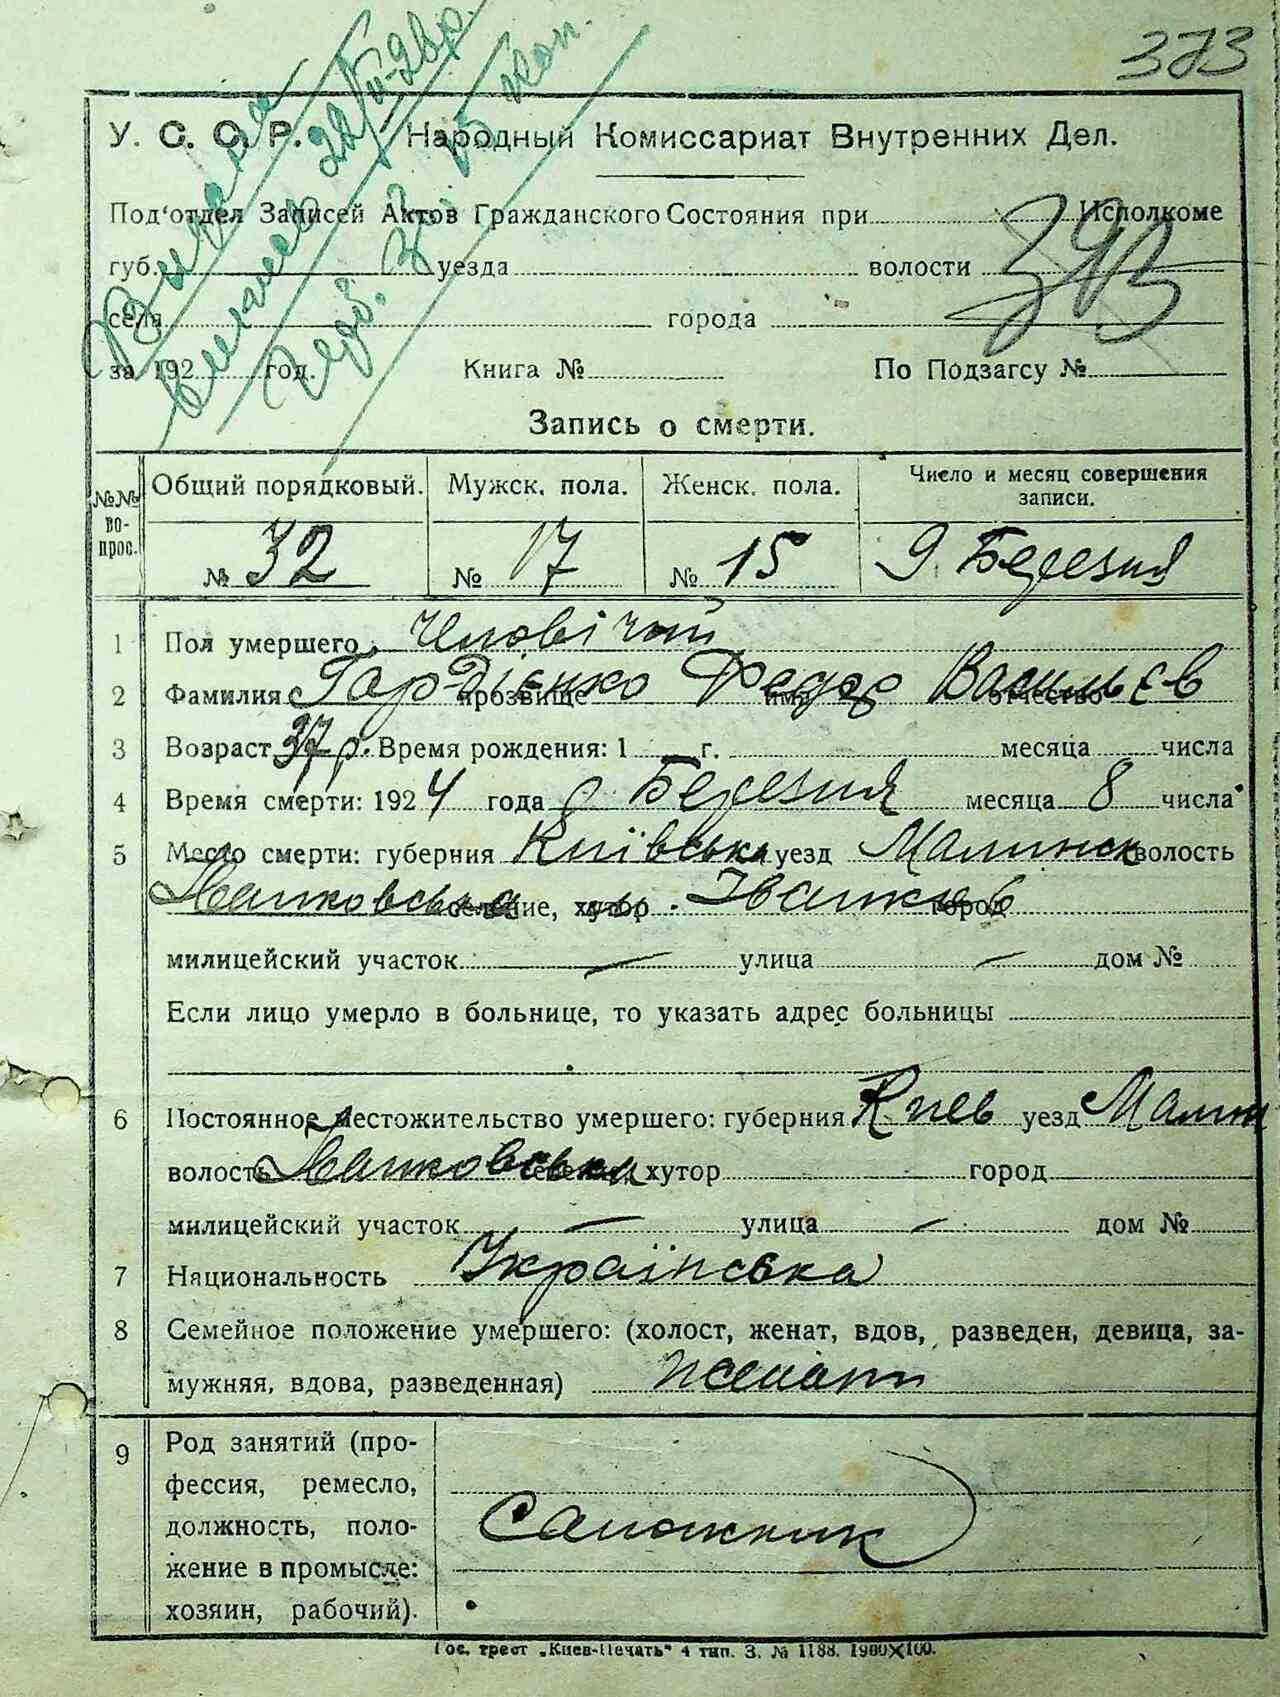 373
У. С. С. Р. Народный Комиссариат Внутренних Дел.
Под'отдел Записей Актов Гражданского Состояния при Исполкоме
губ. уезда волости
села города
за 192 год. Книга № По Подзагсу №
Запись о смерти.
№№ во- прос. Общий порядковый. Мужск. пола. Женск. пола. Число и месяц совершения записи.
№ 32 № 17 № 15 9 Березня
1 Пол умершего Чловічий
2 Фамилия Гордієнко прозвище Федор имя Васильєв отчество
3 Возраст 37 р. Время рождения: 1 г. месяца числа
4 Время смерти: 1924 года Березня месяца 8 числа
5 Место смерти: губерния Київська уезд Малинск волость
Іванковська селение, хутор Іванків город
милицейский участок — улица — дом №
Если лицо умерло в больнице, то указать адрес больницы
6 Постоянное местожительство умершего: губерния Киев уезд Малин
волость Іванковська хутор город
милицейский участок — улица — дом №
7 Национальность Українська
8 Семейное положение умершего: (холост, женат, вдов, разведен, девица, за-
мужняя, вдова, разведенная) женат
9 Род занятий (про-
фессия, ремесло,
должность, поло- Сапожник
жение в промысле:
хозяин, рабочий).
Гос. трест „Киев-Печать" 4 тип. З. № 1188. 1900×100.